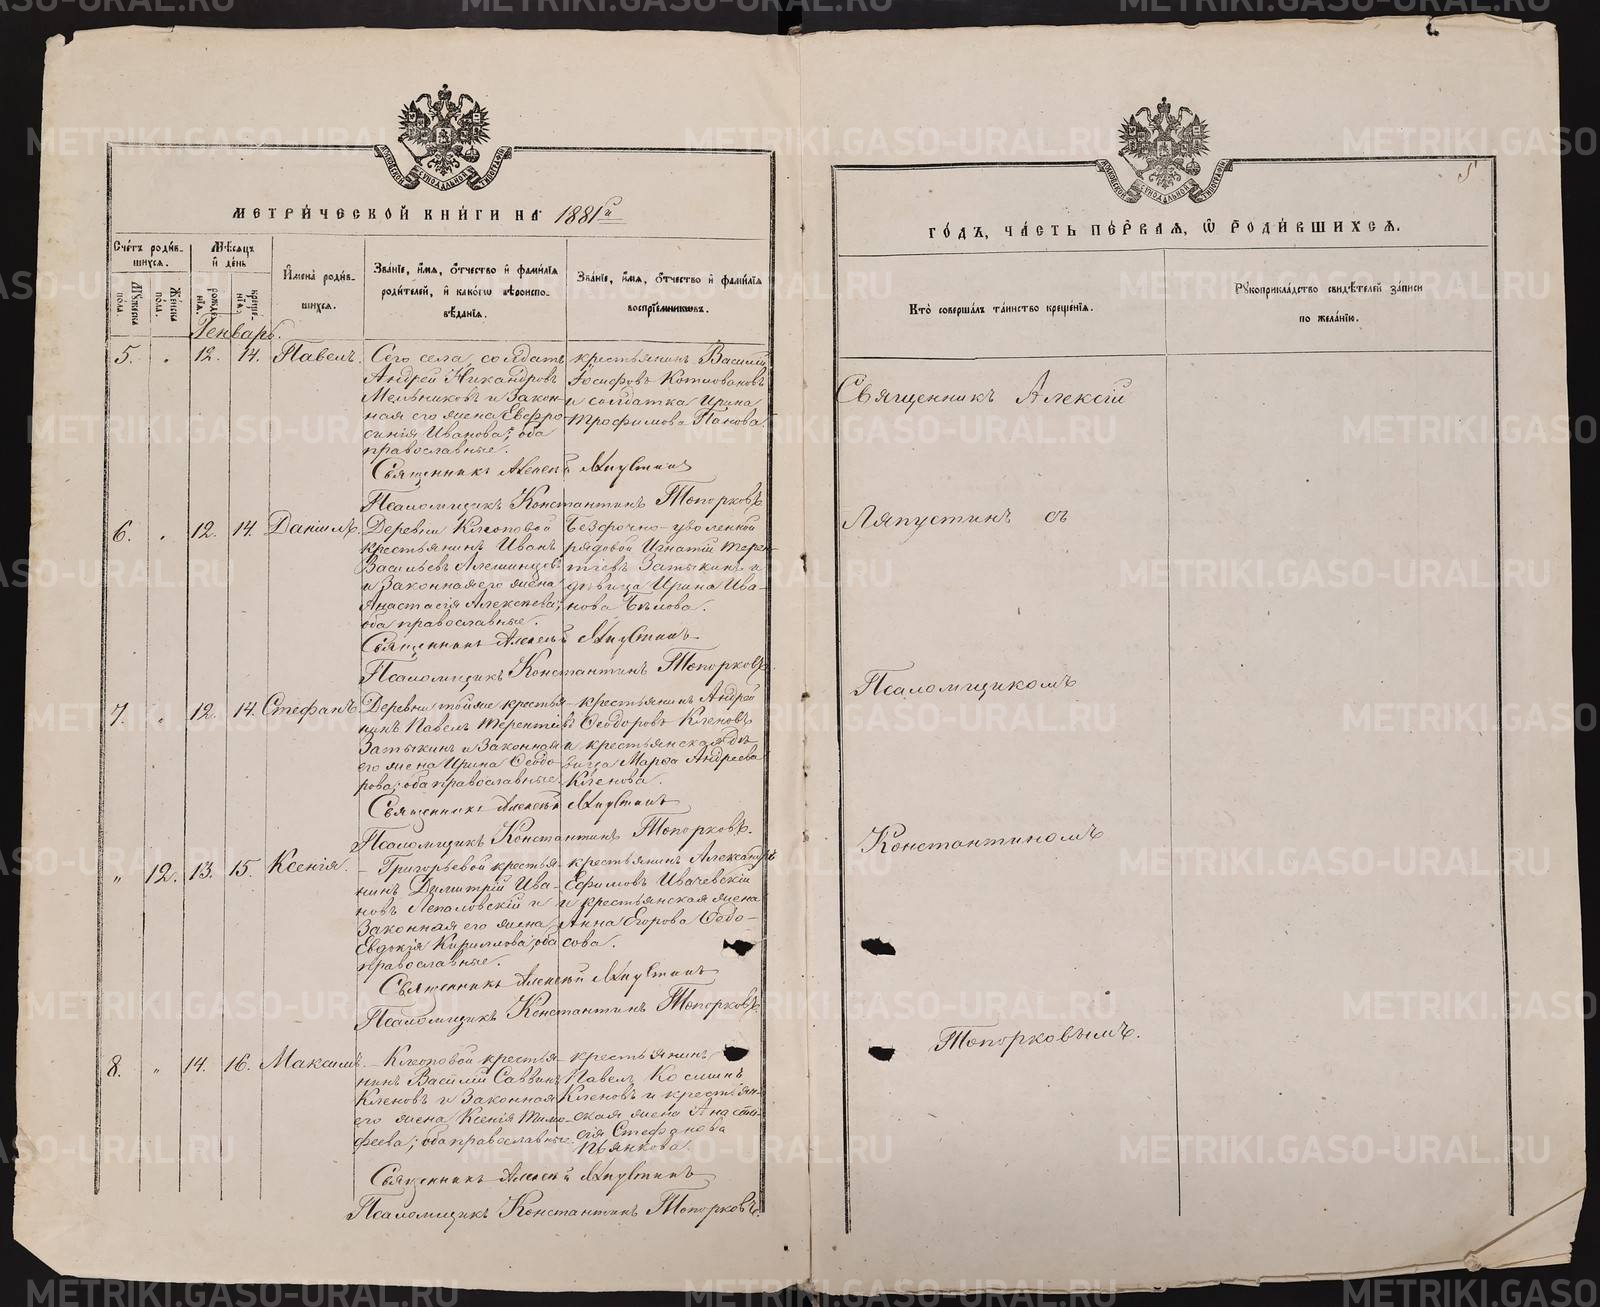 МЕТРИ́ЧЕСКОЙ КНИ́ГИ НА 1881й
Сче́тъ роди́в-
шихся.
Мѣ́сяцъ
и́ де́нь
Му́жеска
пола.
Же́нска
пола.
рожде-
нїѧ.
креще-
нїѧ.
И́мена роди́в-
шихся.
Зва́нїе, и́мя, о́тчество и́ фами́лїя
роди́телей, и́ како́гѡ вѣроиспо-
вѣ́данїя.
Зва́нїе, и́мя, о́тчество и́ фами́лїя
воспрїе́мниковъ.
Генварь.
5. „ 12. 14. Павелъ.
Сего села, солдатъ
Андрей Никандровъ
Мельниковъ и закон-
ная его жена Евфро-
синія Иванова; оба
православные.
крестьянинъ Василій
Іосифовъ Котловановъ
и солдатка Ирина
Трофимова Панова.
Священникъ Алексѣй Ляпустинъ
Псаломщикъ Константинъ Топорковъ
6. „ 12. 14. Даніилъ.
Деревни Клеоповой
крестьянинъ Иванъ
Васильевъ
и законная его жена
Анастасія Алексѣева;
оба православные.
Безсрочно-уволенный
рядовой Игнатій Терен-
тіевъ Затыкинъ и
дѣвица Ирина Ива-
нова Бѣлова.
Священникъ Алексѣй Ляпустинъ
Псаломщикъ Константинъ Топорковъ.
7. „ 12. 14. Стефанъ.
Деревни тойже крестья-
нинъ Павелъ Терентіевъ
Затыкинъ и законная
его жена Ирина Ѳеодо-
рова; оба православные.
крестьянинъ Андрей
Ѳеодоровъ Кленовъ
и крестьянская дѣ-
вица Марѳа Андреева
Кленова.
Священникъ Алексѣй Ляпустинъ
Псаломщикъ Константинъ Топорковъ.
„ 12. 13. 15. Ксенія.
– Григорьевой крестья-
нинъ Димитрій Ива-
новъ Лепаловскій и
законная его жена
Евдокія Кириллова; оба
православные.
крестьянинъ Александръ
Ефимовъ Ивачевскій
и крестьянская жена
Анна Егорова Ѳедо-
сова.
Священникъ Алексѣй Ляпустинъ
Псаломщикъ Константинъ Топорковъ.
8. „ 14. 16. Максимъ.
– Клеоповой крестья-
нинъ Василій Саввинъ
Кленовъ и законная
его жена Ксенія Тимо-
феева; оба православные.
крестьянинъ
Павелъ Косминъ
Кленовъ и крестьян-
ская жена Анаста-
сія Стефанова
Пьянкова.
Священникъ Алексѣй Ляпустинъ
Псаломщикъ Константинъ Топорковъ.
МОСКОВСКОЙ СѴНОДАЛЬНОЙ ТИПОГРАФІИ
5
ГО́ДЪ, ЧА́СТЬ ПЕ́РВАѦ, Ѡ҆ РОДИ́ВШИХСѦ.
Кто̀ соверша́лъ та́инство креще́нїя.
Рукоприкла́дство свидѣ́телей за́писи
по жела́нїю.
Священникъ Алексій
Ляпустинъ съ
Псаломщикомъ
Константиномъ
Топорковымъ.
METRIKI.GASO-URAL.RU